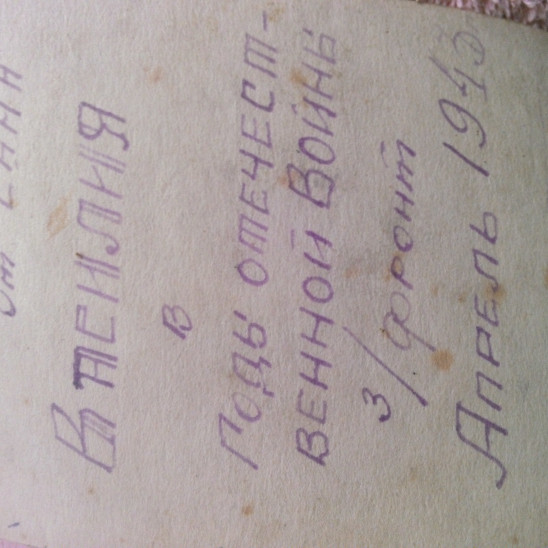 Василия
в
Годы отечест-
венной Войны
З/фронт
Апрель 1943